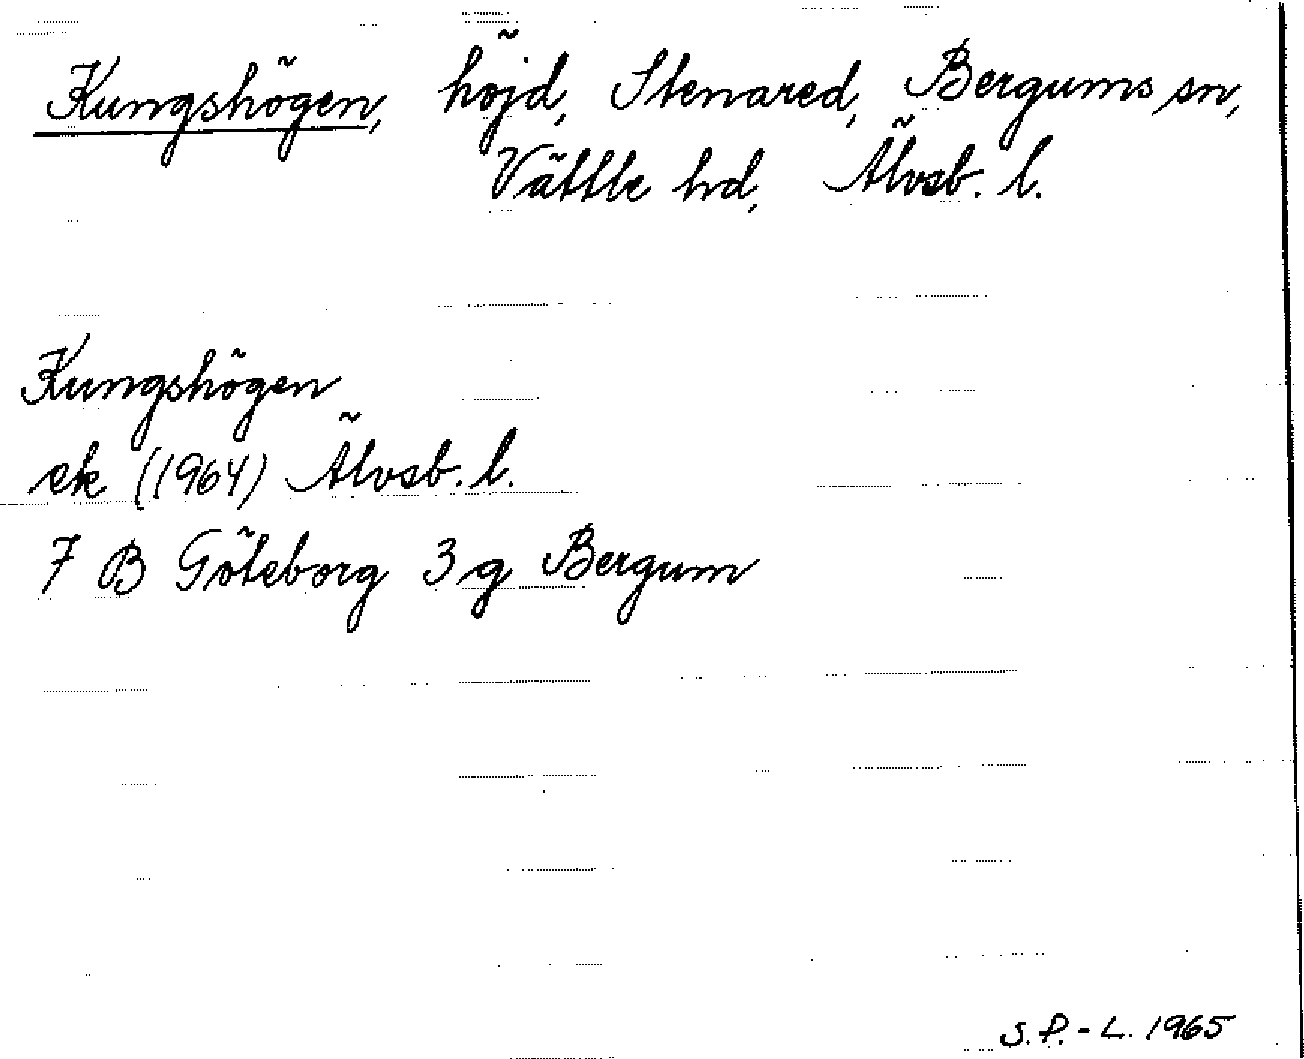 Kungshögen, höjd, Stenared, Bergums sn,
Vättle hd, Älvsb. l.
Kungshögen
ek (1964) Älvsb. l.
7 B Göteborg 3 g Bergum
S.P.-L. 1965